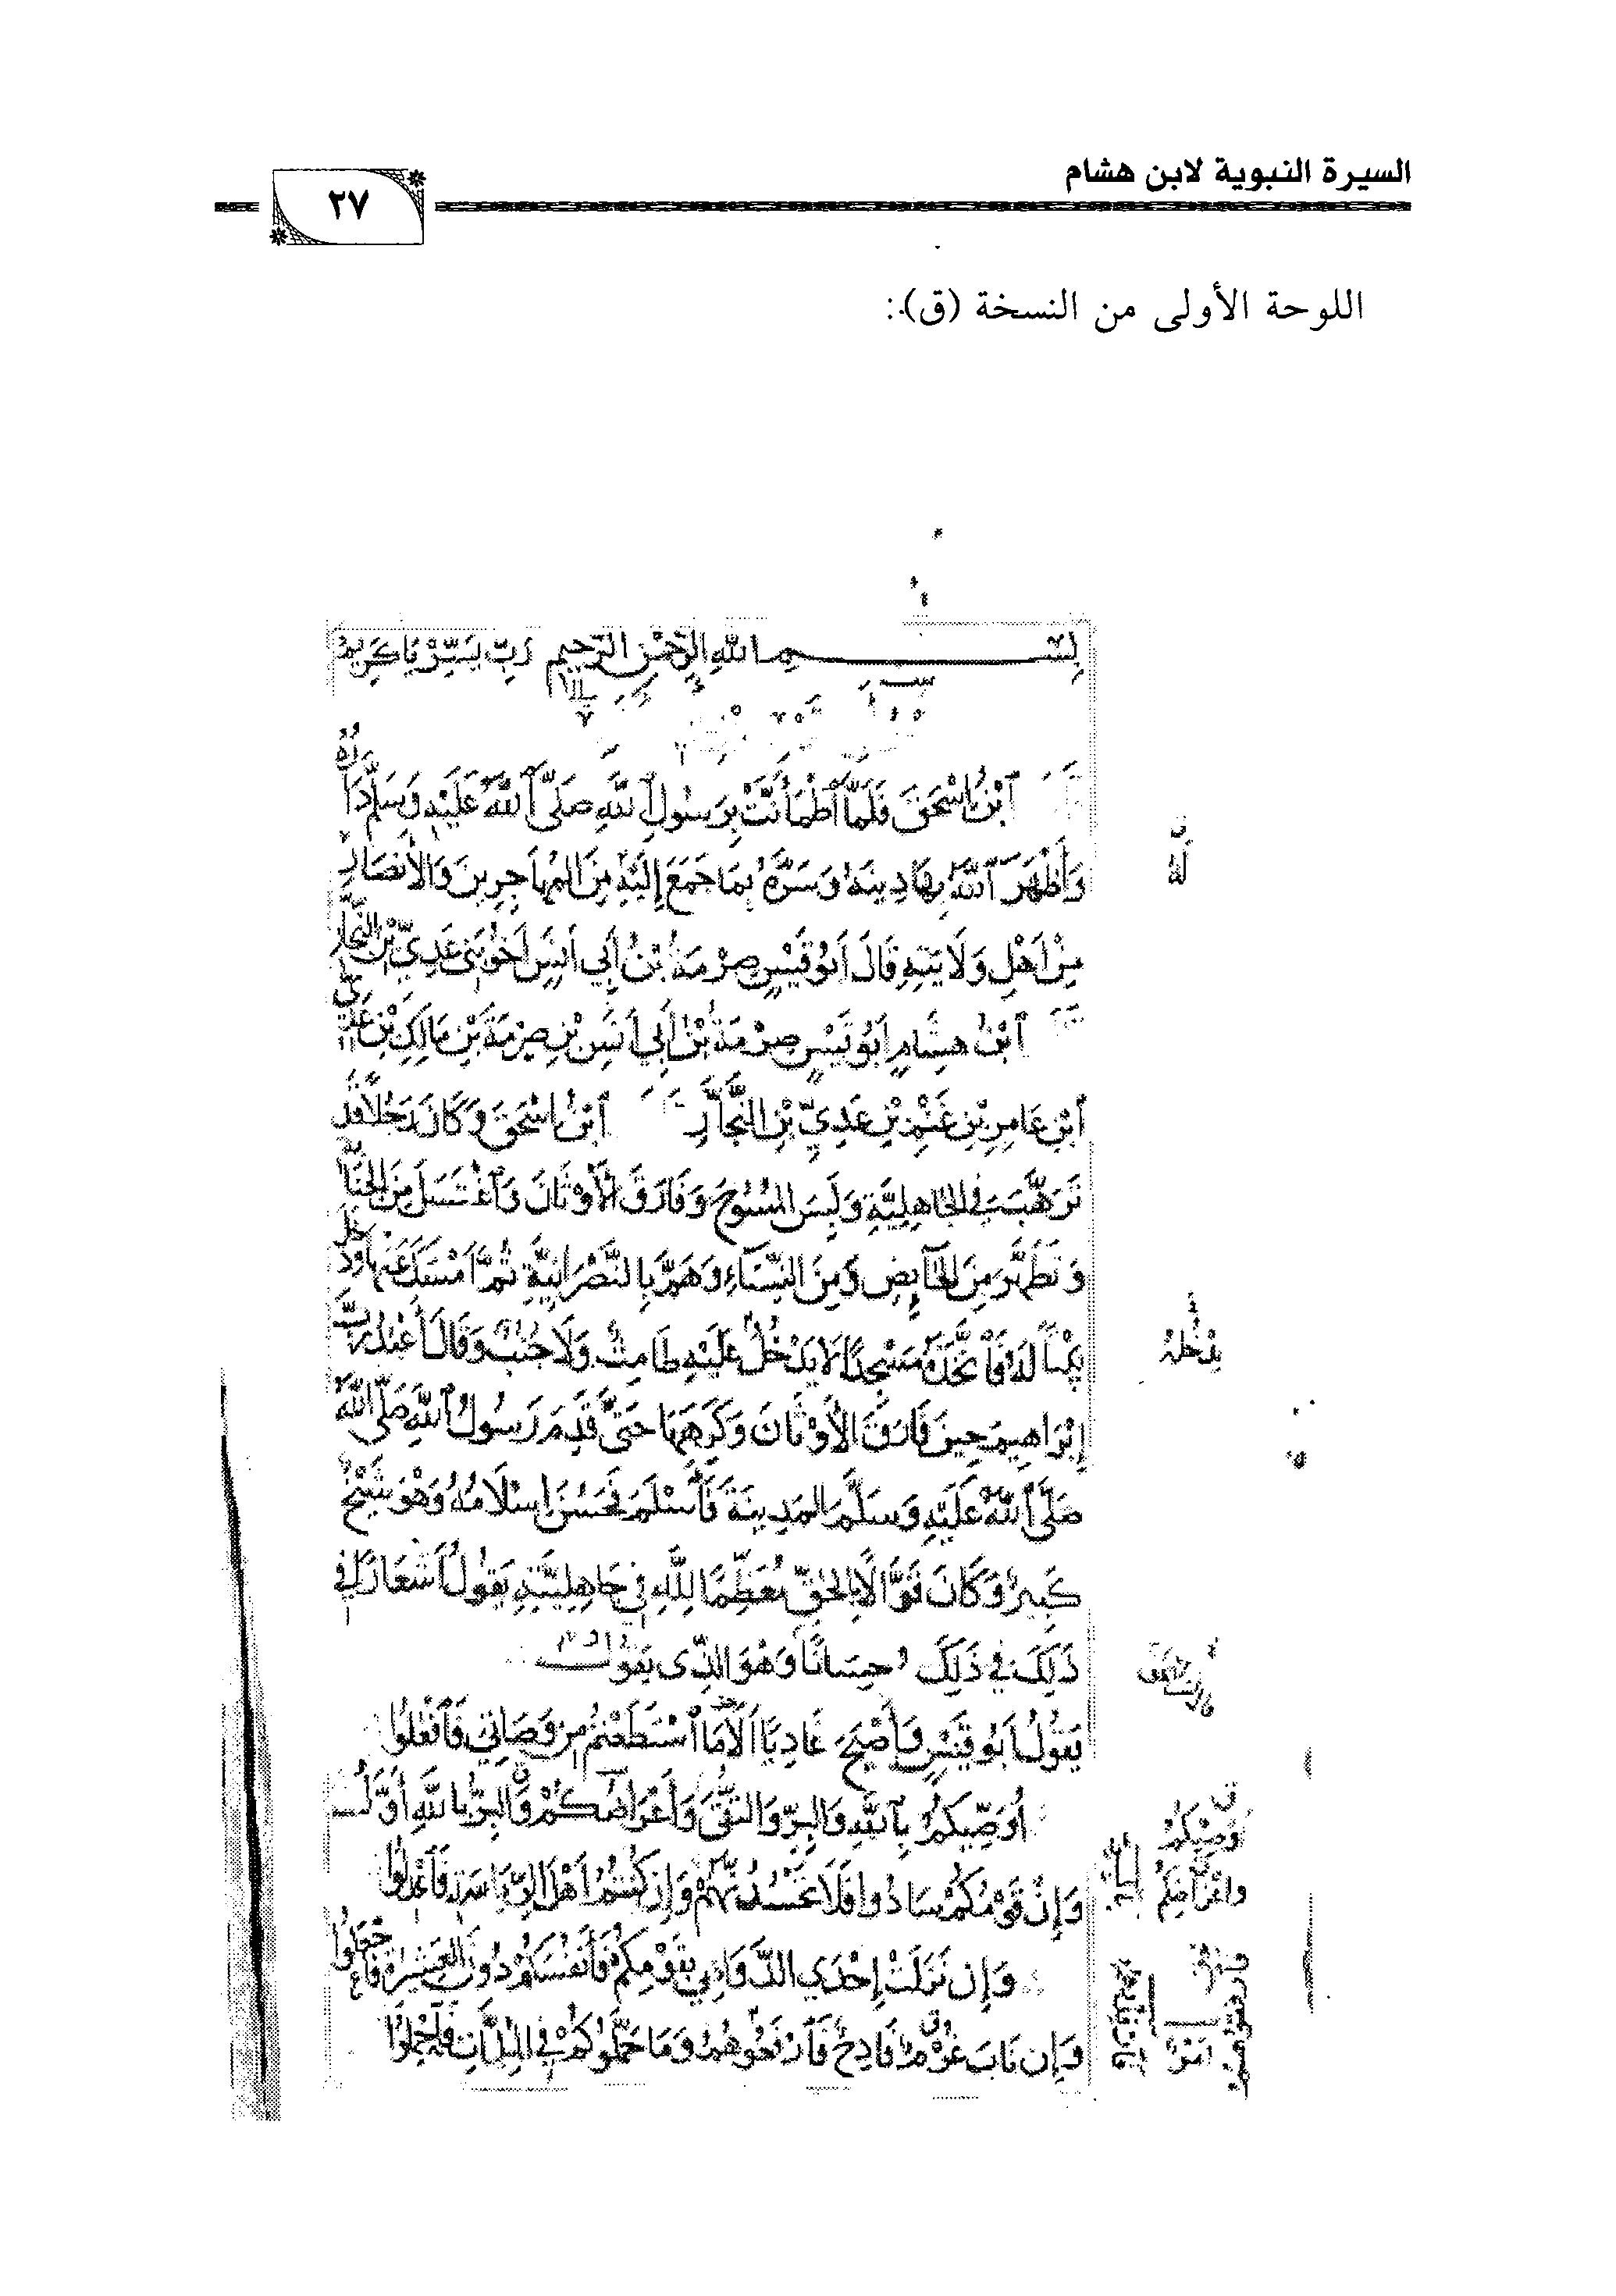 السيرة النبوية لابن هشام
٢٧
اللوحة الأولى من النسخة (ق):
بسم الله الرحمن الرحيم رب يسر يا كريم
ابْنُ إِسْحَقَ فَلَمَّا اطْمَأَنَّتْ بِرَسُولِ اللهِ صَلَّى اللهُ عَلَيْهِ وَسَلَّمَ دَارُهُ
وَأَظْهَرَ اللهُ بِهَا دِينَهُ وَسَرَّهُ بِمَا جَمَعَ إِلَيْهِ مِنَ الْمُهَاجِرِينَ وَالْأَنْصَارِ
لَهُ
مِنْ أَهْلِ وَلَايَتِهِ قَالَ أَبُو قَيْسٍ صِرْمَةُ بْنُ أَبِي أَنَسٍ أَخُو بَنِي عَدِيِّ بْنِ النَّجَّارِ
ابْنُ هِشَامٍ أَبُو قَيْسٍ صِرْمَةُ بْنُ أَبِي أَنَسِ بْنِ صِرْمَةَ بْنِ مَالِكِ بْنِ عَدِيِّ
ابْنِ عَامِرِ بْنِ غَنْمِ بْنِ عَدِيِّ بْنِ النَّجَّارِ ابْنُ إِسْحَقَ وَكَانَ رَجُلًا قَدْ
تَرَهَّبَ فِي الْجَاهِلِيَّةِ وَلَبِسَ الْمُسُوحَ وَفَارَقَ الْأَوْثَانَ وَاغْتَسَلَ مِنَ الْجَنَابَةِ
وَتَطَهَّرَ مِنَ الْحَائِضِ مِنَ النِّسَاءِ وَهَمَّ بِالنَّصْرَانِيَّةِ ثُمَّ أَمْسَكَ عَنْهَا وَدَخَلَ
بَيْتًا لَهُ فَاتَّخَذَهُ مَسْجِدًا لَا يَدْخُلُ عَلَيْهِ طَامِثٌ وَلَا جُنُبٌ وَقَالَ أَعْبُدُ رَبَّ
يدخله
إِبْرَاهِيمَ حِينَ فَارَقَ الْأَوْثَانَ وَكَرِهَهَا حَتَّى قَدِمَ رَسُولُ اللهِ صَلَّى اللهُ
صَلَّى اللهُ عَلَيْهِ وَسَلَّمَ الْمَدِينَةَ فَأَسْلَمَ فَحَسُنَ إِسْلَامُهُ وَهْوَ شَيْخٌ
كَبِيرٌ وَكَانَ قَوَّالًا بِالْحَقِّ مُعَظِّمًا لِلَّهِ فِي جَاهِلِيَّتِهِ يَقُولُ أَشْعَارًا فِي
ذَلِكَ فِي ذَلِكَ حِسَانًا وَهْوَ الَّذِي يَقُولُ
يَقُولُ أَبُو قَيْسٍ وَأَصْبَحَ غَادِيًا أَلَا مَا اسْتَطَعْتُمْ مِنْ وَصَاتِي فَافْعَلُوا
أُوَصِّيكُمُ بِاللهِ وَالْبِرِّ وَالتُّقَى وَأَعْرَاضَكُمْ وَالْبِرُّ بِاللهِ أَوَّلُ
وَإِنْ قَوْمُكُمْ سَادُوا فَلَا تَحْسُدُنَّهُمْ وَإِنْ كُنْتُمْ أَهْلَ الرِّيَاسَةِ فَاعْدِلُوا
وَإِنْ نَزَلَتْ إِحْدَى الدَّوَاهِي بِقَوْمِكُمْ فَأَنْفُسَكُمْ دُونَ الْعَشِيرَةِ فَاجْعَلُوا
وَإِنْ نَابَ غُرْمٌ فَادِحٌ فَارْفَقُوهُمُ وَمَا حَمَّلُوكُمْ فِي الْمُلِمَّاتِ فَاحْمِلُوا